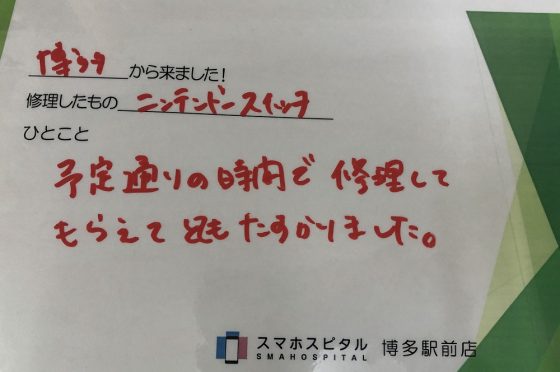 博多から来ました!
修理したもの ニンテンドースイッチ
ひとこと
予定通りの時間で 修理して
もらえて とても たすかりました。
スマホスピタル 博多駅前店
SMAHOSPITAL